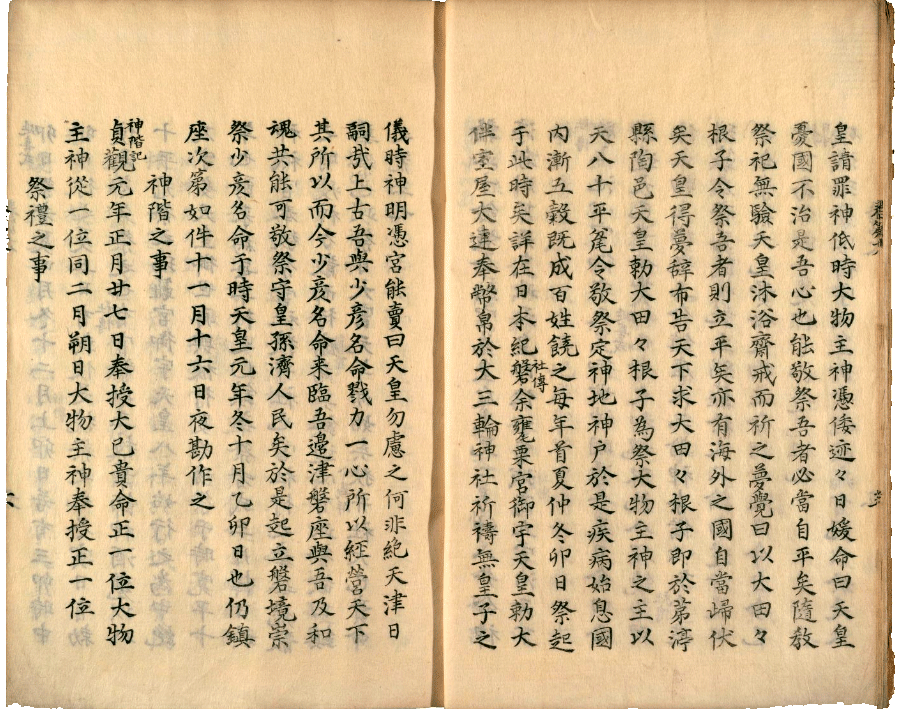 皇請罪神低時大物主神憑倭迹々日媛命曰天皇
憂國不治是吾心也能敬祭吾者必當自平矣隨教
祭祀無驗天皇沐浴齋戒而祈之夢覺曰以大田々
根子令祭吾者則立平矣亦有海外之國自當歸伏
矣天皇得夢辞布告天下求大田々根子即於茅渟
縣陶邑天皇勅大田々根子為祭大物主神之主以
天八十平瓮令敬祭定神地神戸於是疾病始息國
内漸五穀既成百姓饒之每年首夏仲冬卯日祭起
于此時矣詳在日本紀社傳磐余甕栗宮御宇天皇勅大
伴室屋大連奉幣帛於大三輪神社祈禱無皇子之
儀時神明憑宮能賣曰天皇勿慮之何非絶天津日
嗣哉上古吾與少彦名命戮力一心所以經營天下
其所以而今少彦名命来臨吾邊津磐座與吾及和
魂共能可敬祭守皇孫濟人民矣於是起立磐境崇
祭少彦名命于時天皇元年冬十月乙卯日也仍鎮
座次第如件十一月十六日夜勘作之
神階之事
神階記
貞觀元年正月廿七日奉授大己貴命正一位大物
主神從一位同二月朔日大物主神奉授正一位
祭禮之事